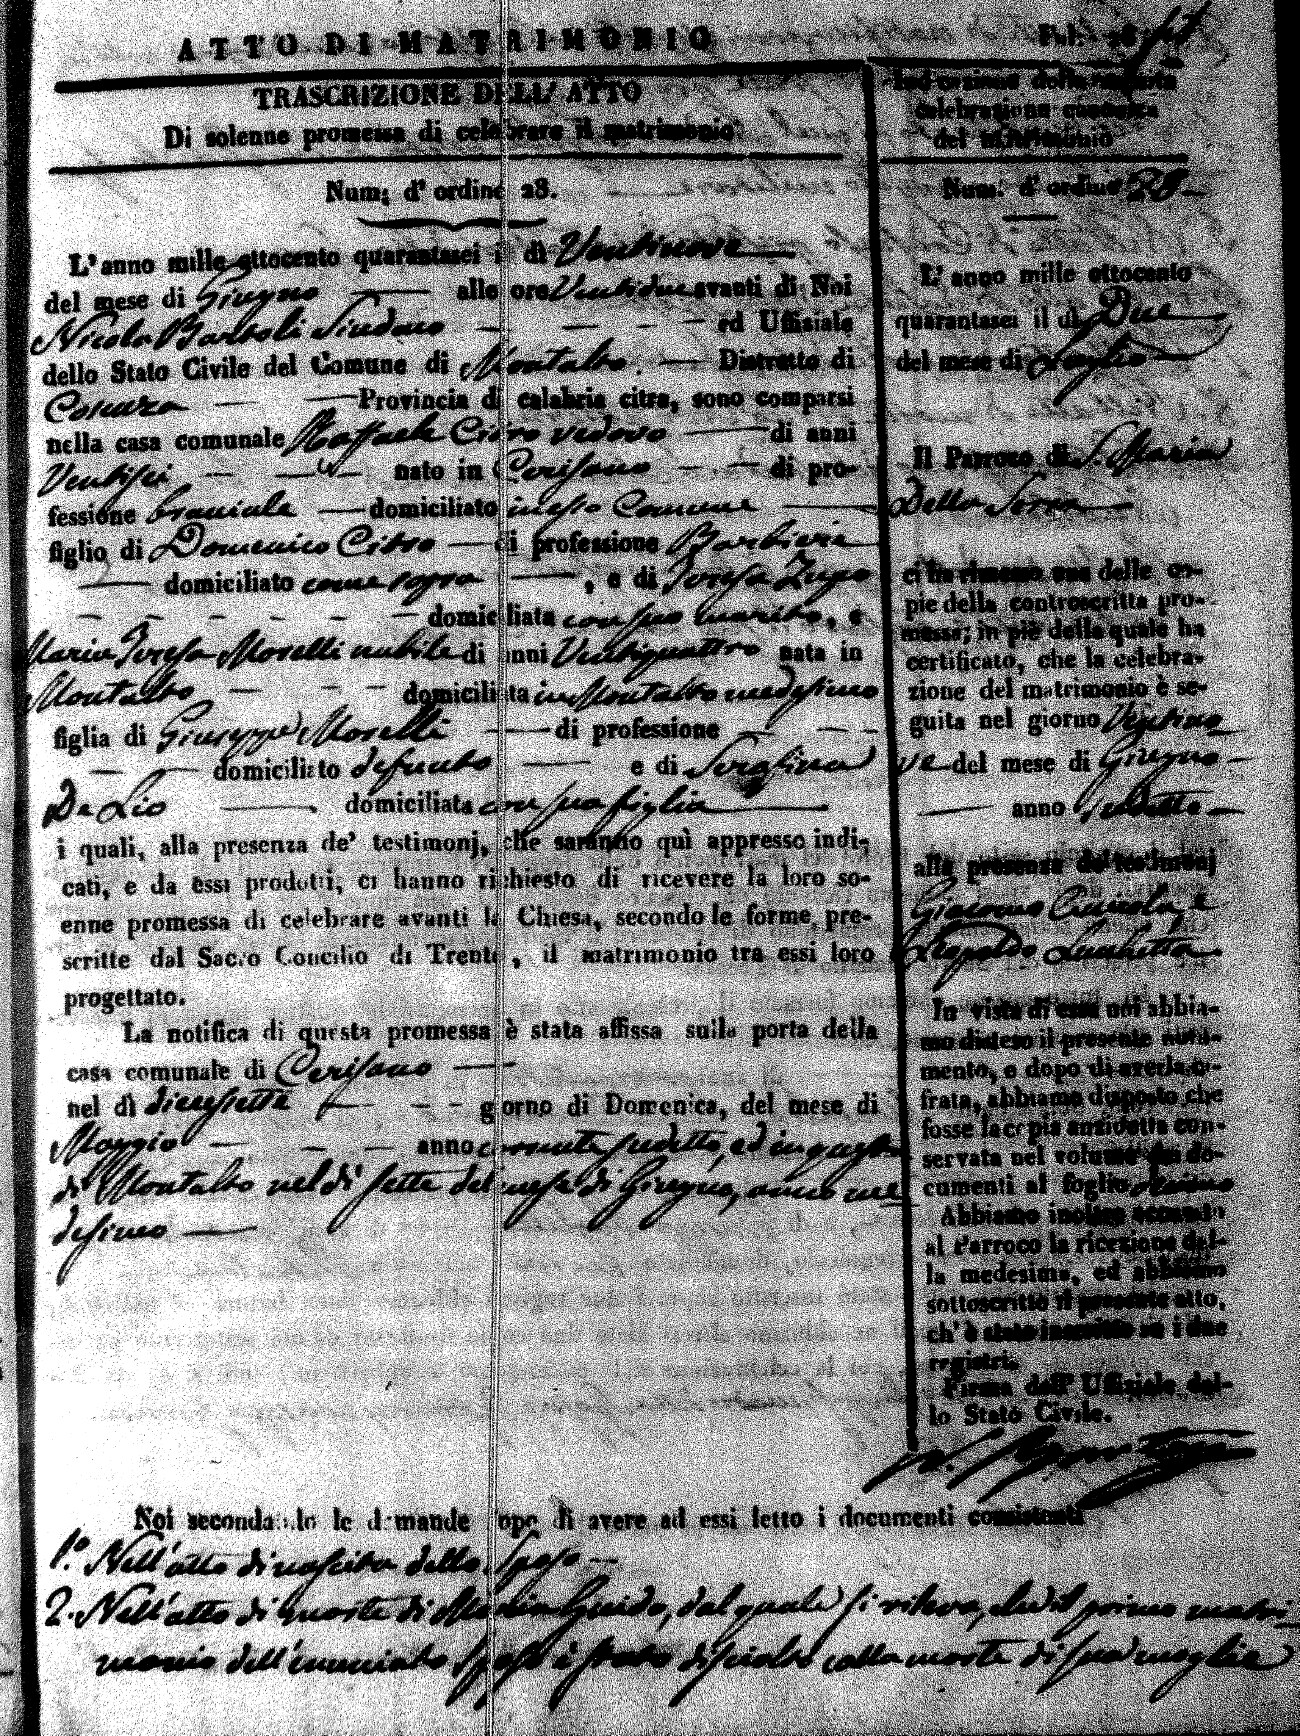 ATTO DI MATRIMONIO
TRASCRIZIONE DELL' ATTO
Di solenne promessa di celebrare il matrimonio
Num; d' ordine 28.
L' anno mille ottocento quarantasei il dì Ventinove
del mese di Giugno alle ore Ventidue avanti di Noi
Nicola Bartoli Sindaco ed Uffiziale
dello Stato Civile del Comune di Montalto Distretto di
Cosenza Provincia di calabria citra, sono comparsi
nella casa comunale Raffaele Citro vedovo di anni
Ventisei nato in Cerisano di pro-
fessione braciale domiciliato in esso Comune
figlio di Domenico Citro di professione Barbiere
domiciliato come sopra , e di Teresa Zupo
domiciliata con suo marito, e
Maria Teresa Morelli nubile di anni Ventiquattro nata in
Montalto domiciliata in Montalto medesimo
figlia di Giuseppe Morelli di professione
domiciliato defunto e di Serafina
De Lio domiciliata con sua figlia
i quali, alla presenza de' testimonj, che saranno quì appresso indi-
cati, e da essi prodotti, ci hanno richiesto di ricevere la loro so-
enne promessa di celebrare avanti la Chiesa, secondo le forme pre-
scritte dal Sacro Concilio di Trento, il matrimonio tra essi loro
progettato.
La notifica di questa promessa è stata affissa sulla porta della
casa comunale di Cerisano
nel dì diciassette giorno di Domenica, del mese di
Maggio anno corrente sudetto, ed in questa
di Montalto nel dì sette del mese di Giugno, anno me
desimo
Fol. 28
Indicazione della seguita
celebrazione canonica
del matrimonio
Num. d' ordine 28
L' anno mille ottocento
quarantasei il dì Due
del mese di Luglio
Il Parroco di S. Maria
Della Serra
ci ha rimesso una delle co-
pie della controscritta pro-
messa; in piè della quale ha
certificato, che la celebra-
zione del matrimonio è se-
guita nel giorno Ventino
ve del mese di Giugno
anno sudetto
alla presenza de' testimonj
Giacomo e
Leopoldo Lucchetta
In vista di essa noi abbia-
mo disteso il presente notu-
mento, e dopo di averla ci-
frata, abbiamo disposto che
fosse la copia anzidetta con-
servata nel volume de' do-
cumenti al foglio
Abbiamo inoltre accusato
al Parroco la ricezione del-
la medesima, ed abbiamo
sottoscritto il presente atto,
ch' è stato inscritto su i due
registri.
Firma dell' Uffiziale del-
lo Stato Civile.
Noi secondando le domande dopo di avere ad essi letto i documenti consistenti
1.º Nell'atto di nascita dello Sposo
2. Nell'atto di morte di Guido, dal quale si rileva, che il primo matri
monio dell'enunciato Sposo è stato disciolto colla morte di sua moglie